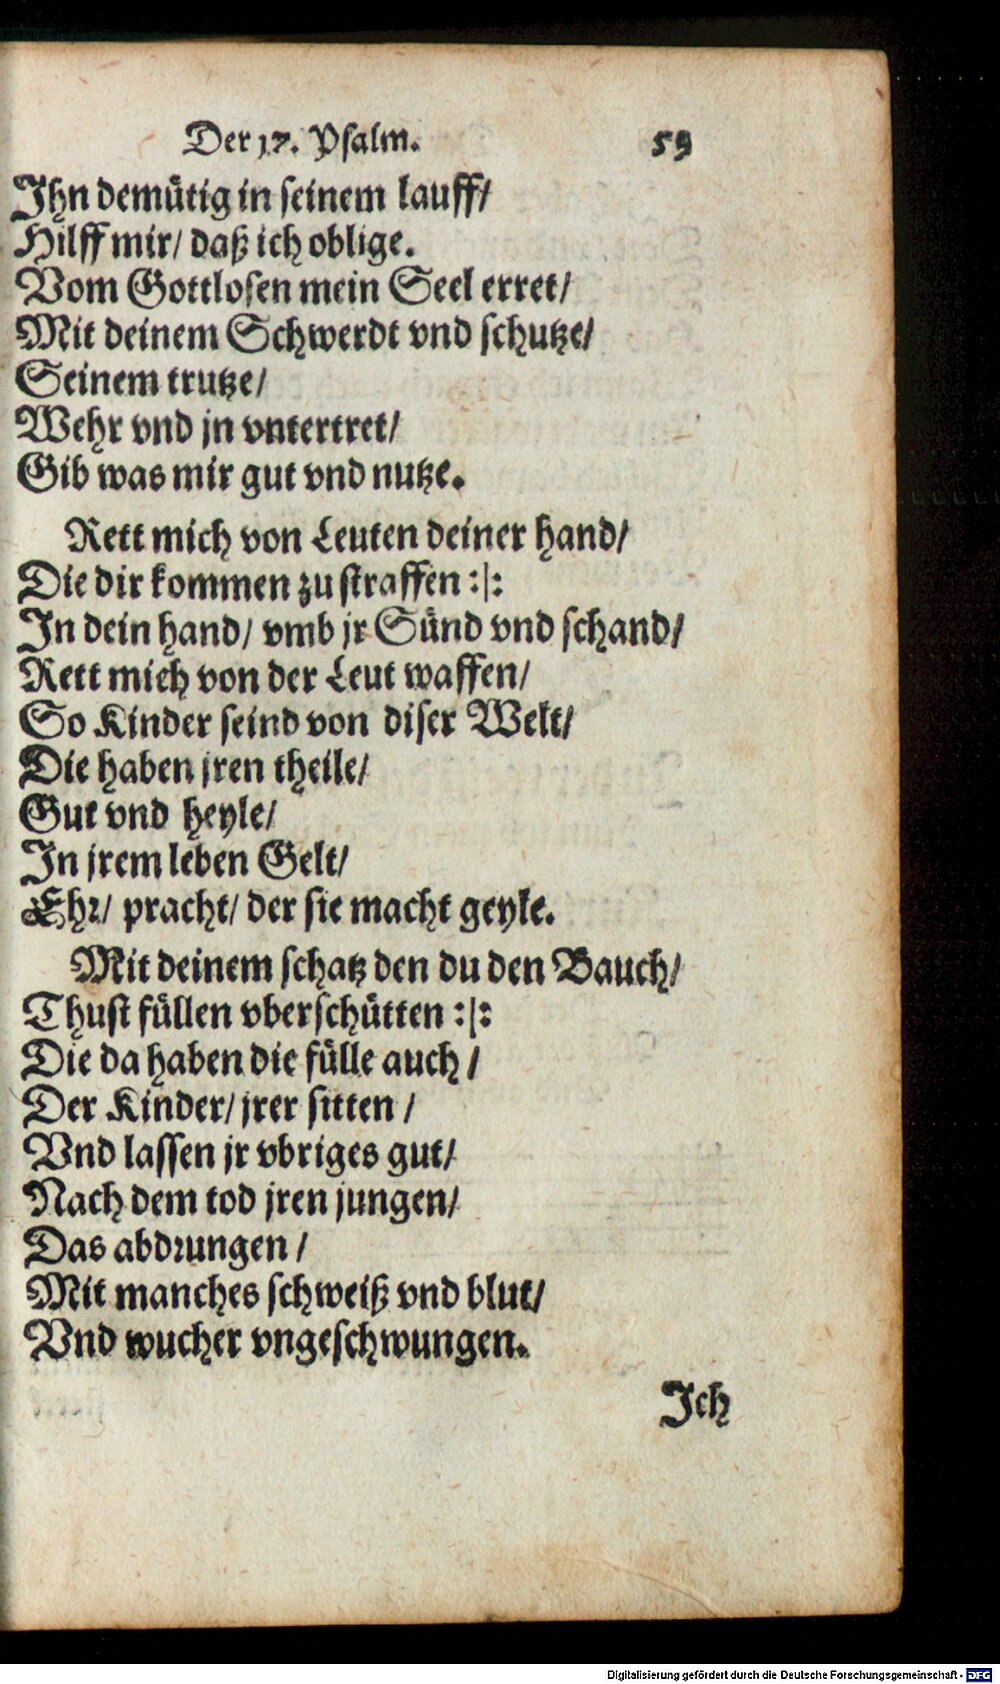 Der 17. Psalm. 59
Ihn demütig in seinem lauff/
Hilff mir/ daß ich oblige.
Vom Gottlosen mein Seel erret/
Mit deinem Schwerdt vnd schutze/
Seinem trutze/
Wehr vnd jn vntertret/
Gib was mir gut vnd nutze.
Rett mich von Leuten deiner hand/
Die dir kommen zu straffen :|:
In dein hand/ vmb jr Sünd vnd schand/
Rett mich von der Leut waffen/
So Kinder seind von diser Welt/
Die haben jren theile/
Gut vnd heyle/
In jrem leben Gelt/
Ehr/ pracht/ der sie macht geyle.
Mit deinem schatz den du den Bauch/
Thust füllen vberschütten :|:
Die da haben die fülle auch /
Der Kinder/ jrer sitten /
Vnd lassen jr vbriges gut/
Nach dem tod jren jungen/
Das abdrungen /
Mit manches schweiß vnd blut/
Vnd wucher vngeschwungen.
Ich
Digitalisierung gefördert durch die Deutsche Forschungsgemeinschaft - DFG